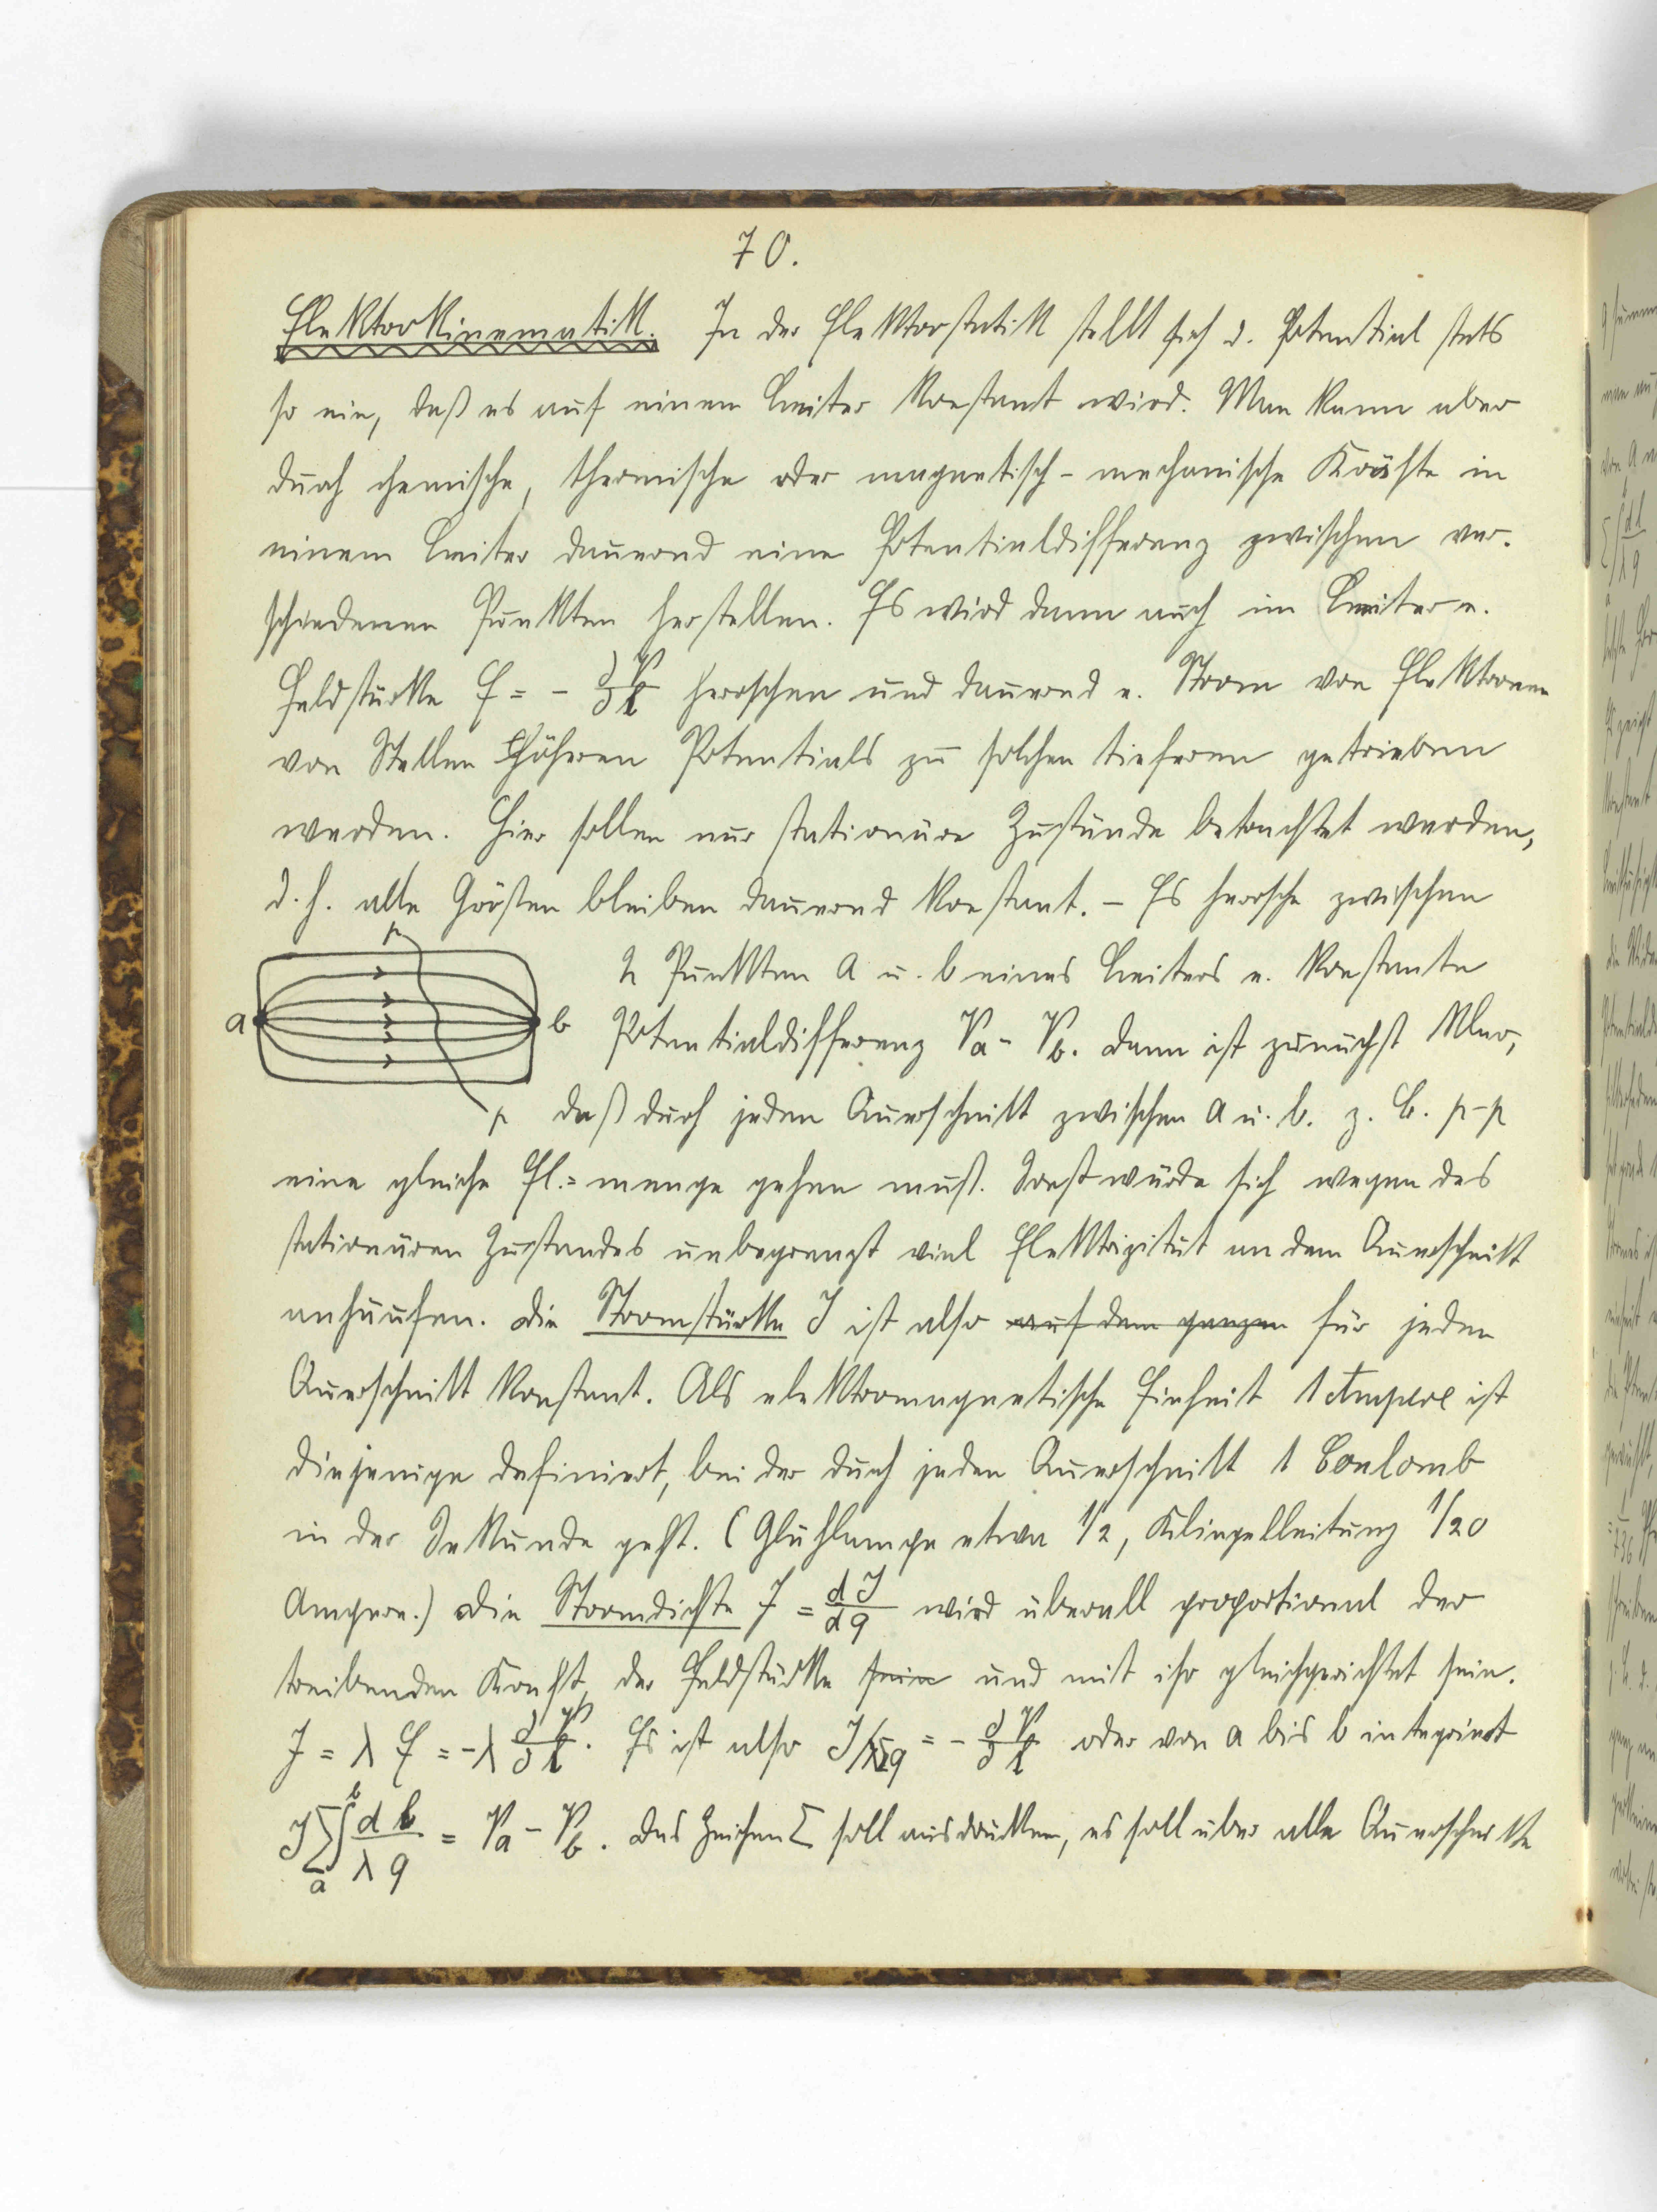 70.
Elektrokinematik. In der Elektrostatik stellt sich d. Potential stets
so ein, daß es auf einem Leiter konstant wird. Man kann aber
durch chemische, thermische oder magnetisch-mechanische Kräfte in
einem Leiter dauernd eine Potentialdifferenz zwischen ver-
schiedenen Punkten herstellen. Es wird dann auch im Leiter e.
Feldstärke E = - ∂V/∂l herrschen und dauernd e. Strom von Elektronen
von Stellen höheren Potentials zu solchen tieferen getrieben
werden. Hier sollen nur stationäre Zustände betrachtet werden,
d. h. alle Größen bleiben dauernd konstant. – Es herrsche zwischen
p
2 Punkten a u. b eines Leiters e. konstante
a b Potentialdifferenz Va - Vb. Dann ist zunächst klar,
p daß durch jeden Querschnitt zwischen a u. b. z. B. p-p
eine gleiche El.=menge gehen muß. Sonst würde sich wegen des
stationären Zustandes unbegrenzt viel Elektrizität an dem Querschnitt
anhäufen. Die Stromstärke J ist also auf dem ganzen für jeden
Querschnitt konstant. Als elektromagnetische Einheit 1 Ampere ist
diejenige definiert, bei der durch jeden Querschnitt 1 Coulomb
in der Sekunde geht. (Glühlampe etwa 1/2, Klingelleitung 1/20
Ampere.) Die Stromdichte j = dJ/dq wird überall proportional der
treibenden Kraft, der Feldstärke sein und mit ihr gleichgerichtet sein.
j = λ E = -λ ∂V/∂l. Es ist also J/λΣq = - ∂V/∂l oder von a bis b integriert
J Σ∫ₐᵇ dl/λq = Va - Vb. Das Zeichen Σ soll ausdrücken, es soll über alle Querschnitte